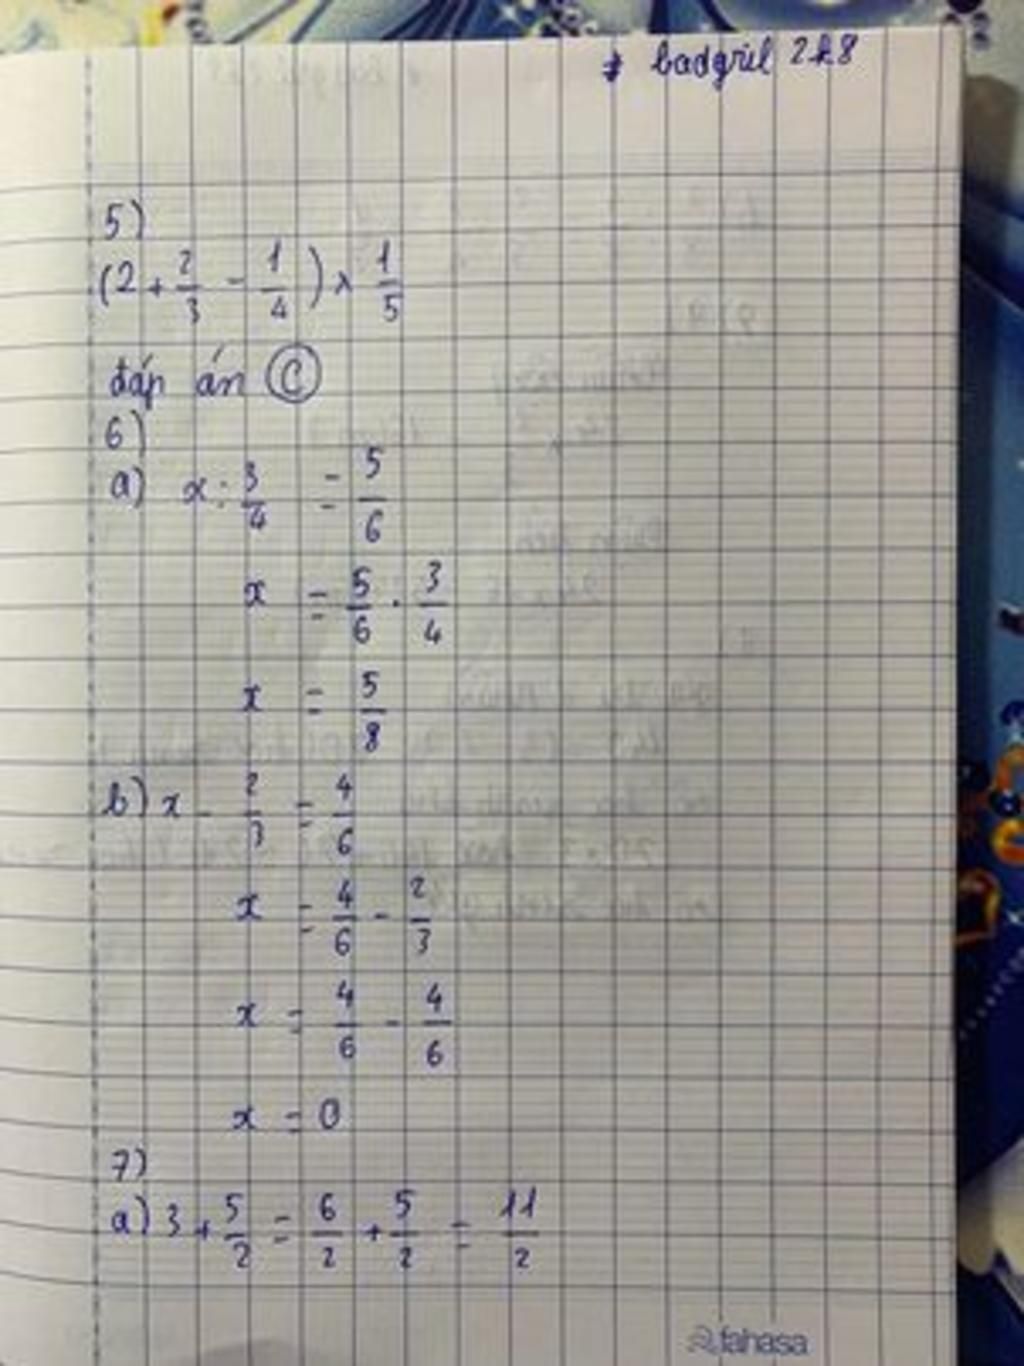 # badgrül 2k8
5)
(2 + 2/3 - 1/4) x 1/5
đáp án C
6)
a) x : 3/4 = 5/6
x = 5/6 . 3/4
x = 5/8
b) x - 2/3 = 4/6
x = 4/6 - 2/3
x = 4/6 - 4/6
x = 0
7)
a) 3 + 5/2 = 6/2 + 5/2 = 11/2
fahasa